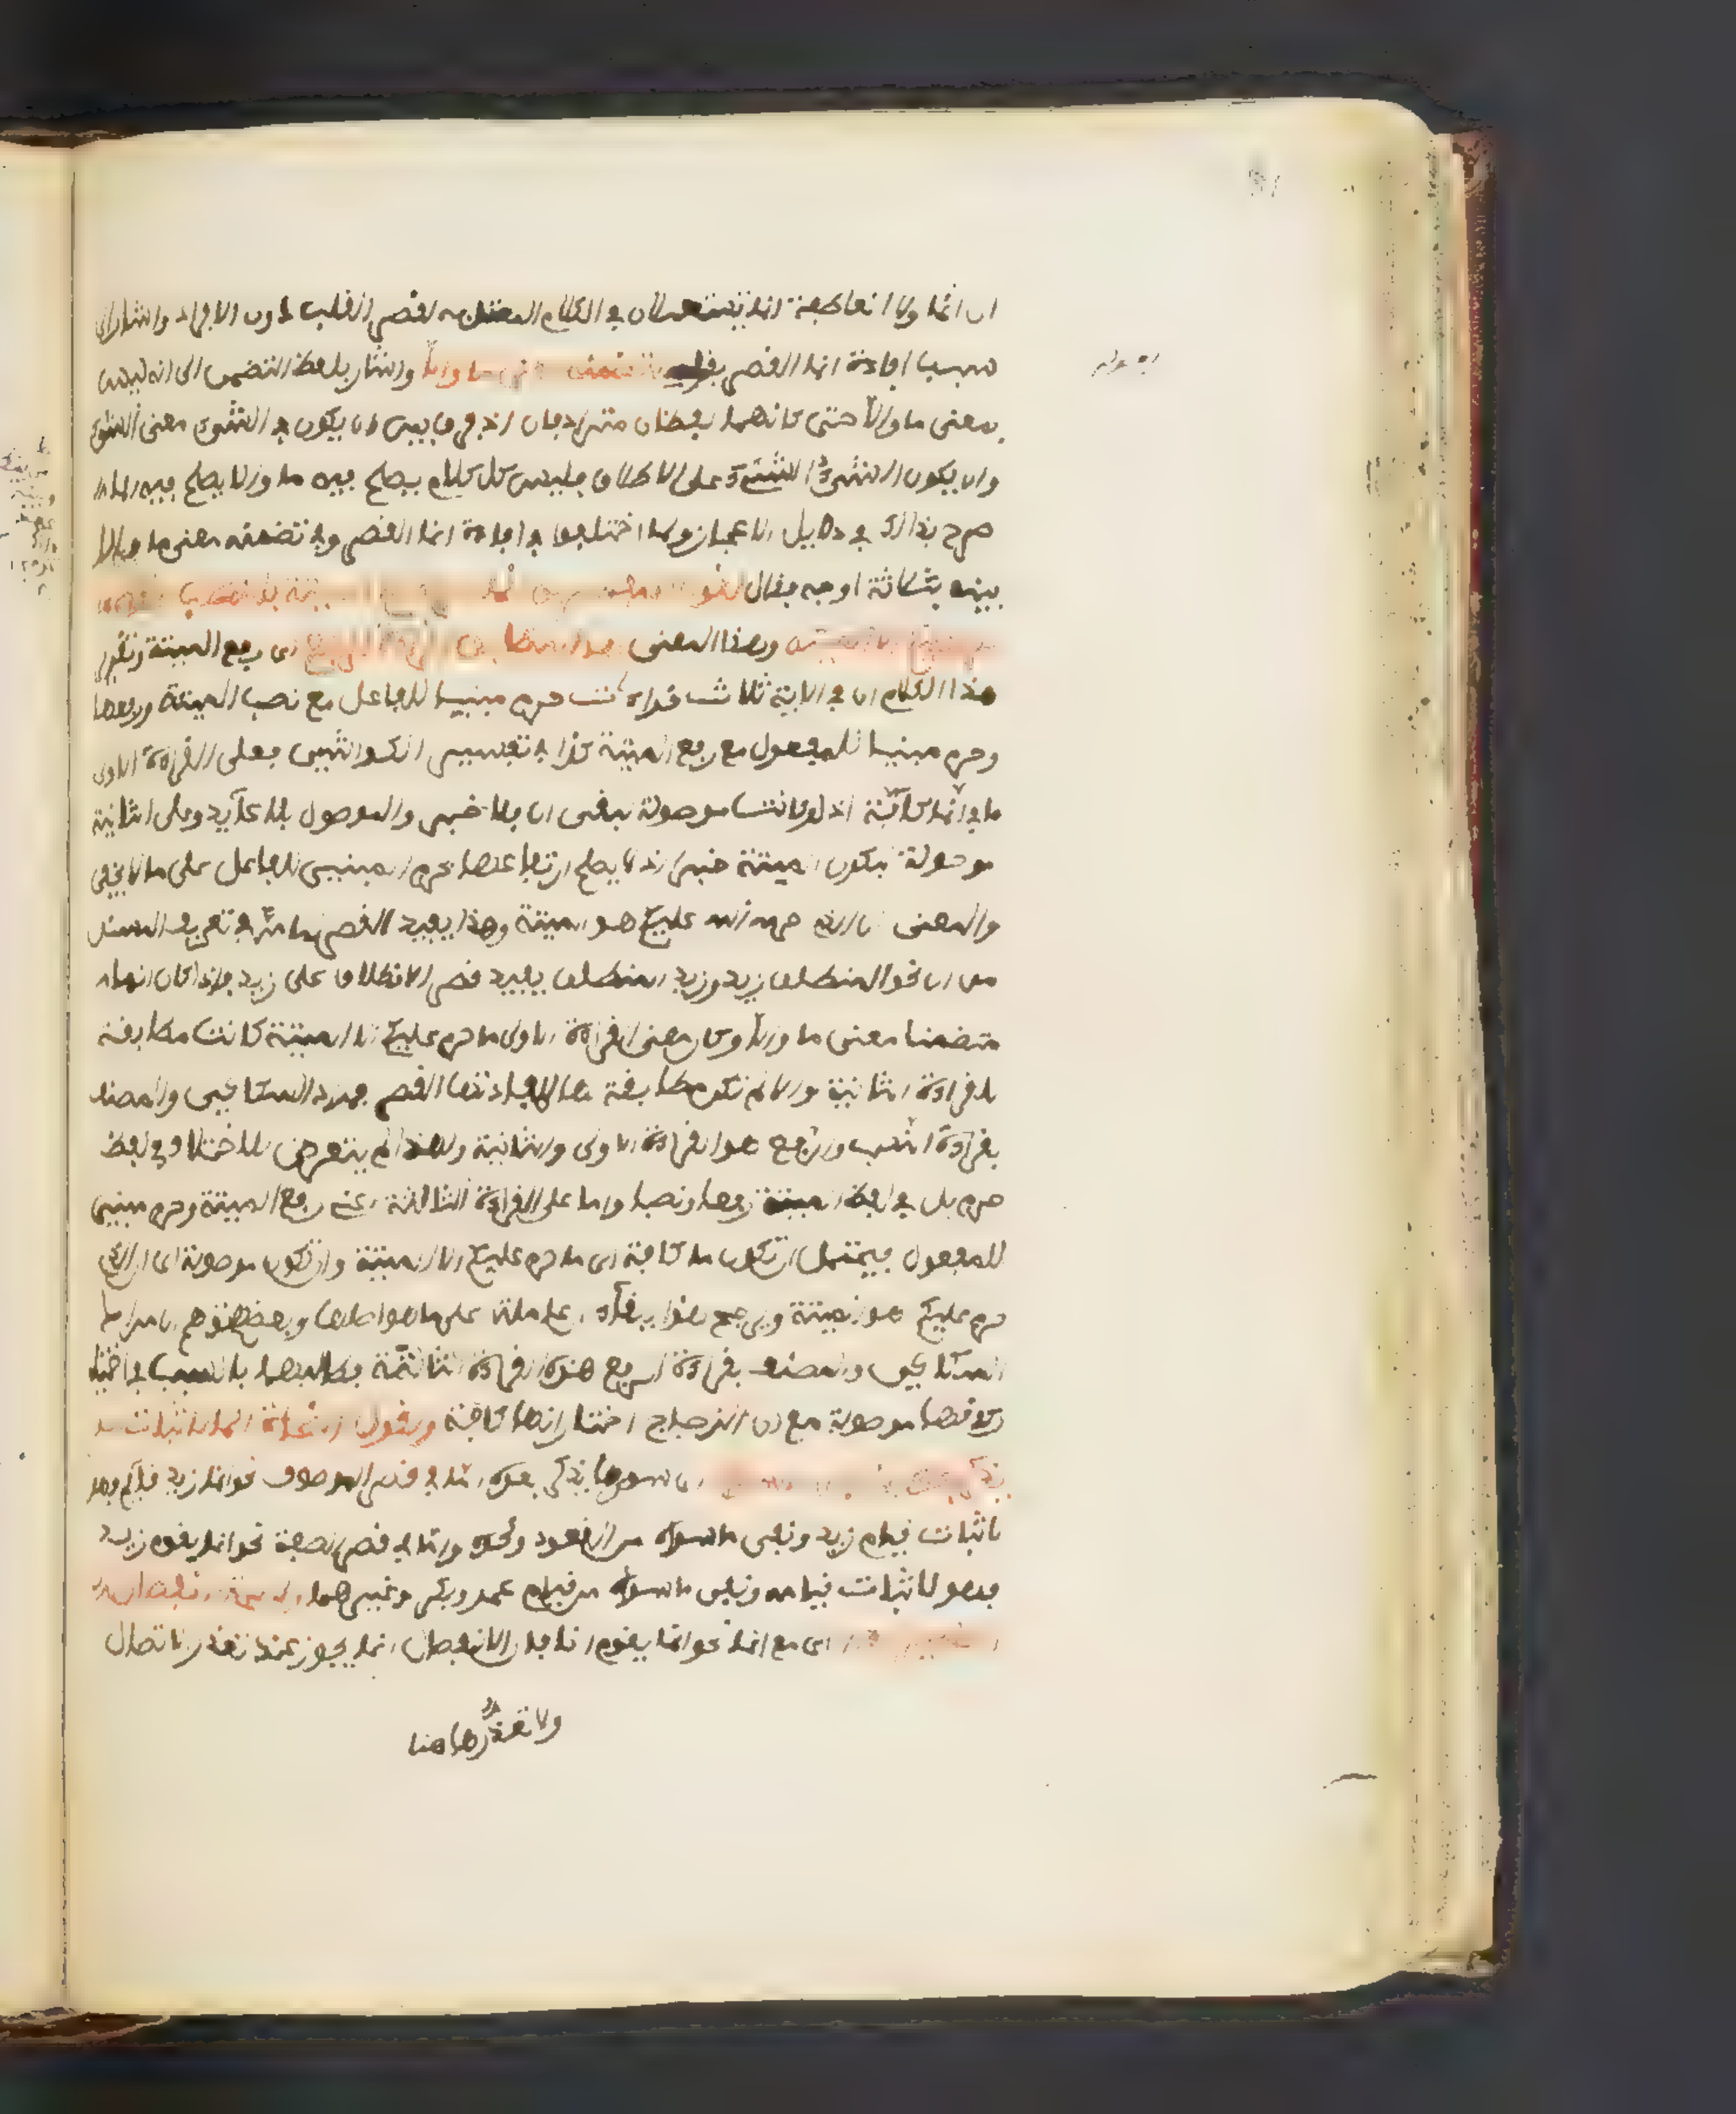 ان انما ولا العاطفة انما يستعملان في الكلام المعتد به لقصر القلب دون الافراد واشار الى
سبب افادة انما القصر بقوله لتضمنه معنى ما والا واشار بلفظ التضمن الى انه ليس
بمعنى ما والا حتى كانهما لفظان مترادفان اذ فرق بين ان يكون في الشيء معنى الشيء
وان يكون الشيء الشيء على الاطلاق فليس كل كلام يصلح فيه ما والا يصلح فيه انما
صرح بذلك في دلايل الاعجاز ولما اختلفوا في افادة انما القصر وفي تضمنه معنى ما والا
بينه بثلاثة اوجه فقال لقول المفسرين انما حرم عليكم الميتة بالنصب معناه
ما حرم عليكم الا الميتة وهذا المعنى هو المطابق لقراءة الرفع اى رفع الميتة وتقرير
هذا الكلام ان في الاية ثلاث قراءات حرم مبنيا للفاعل مع نصب الميتة ورفعها
وحرم مبنيا للمفعول مع رفع الميتة كذا في تفسير الكواشي فعلى القراءة الاولى
ما في انما كافة اذ لو كانت موصولة لبقى ان بلا خبر والموصول بلا عايد وعلى الثانية
موصولة لتكون الميتة خبرا اذ لا يصلح ارتفاعها بحرم المبني للفاعل على ما لا يخفى
والمعنى ان الذي حرمه الله عليكم هو الميتة وهذا يفيد القصر لما مر في تعريف المسند
من ان نحو المنطلق زيد وزيد المنطلق يفيد قصر الانطلاق على زيد فاذا كان انما
متضمنا معنى ما والا وكان معنى القراءة الاولى ما حرم عليكم الا الميتة كانت مطابقة
للقراءة الثانية والا لم تكن مطابقة لها لافادتها القصر فمراد السكاكي والمصنف
بقراءة النصب والرفع هو القراءة الاولى والثانية ولهذا لم يتعرض للاختلاف في لفظ
حرم بل في لفظ الميتة رفعا ونصبا واما على القراءة الثالثة اعني رفع الميتة وحرم مبني
للمفعول فيحتمل ان تكون ما كافة اى ما حرم عليكم الا الميتة وان تكون موصولة اى ان الذي
حرم عليكم هو الميتة ويرجح هذا ببقاء ان عاملة على ما هو اصلها وبعضهم توهم ان مراد
السكاكي والمصنف بقراءة الرفع هذه القراءة الثالثة فطالبهما بالسبب في اختيار
كونها موصولة مع ان الزجاج اختار انها كافة ولقول النحاة انما لاثبات ما
يذكر بعده ونفي ما سواه اى سوى ما يذكر بعده اما في قصر الموصوف نحو انما زيد قايم فهو
لاثبات قيام زيد ونفى ما سواه من القعود ونحوه واما في قصر الصفة نحو انما يقوم زيد
فهو لاثبات قيامه ونفى ما سواه من قيام عمرو وبكر وغيرهما ولصحة انفصال
الضمير معه اى مع انما نحو انما يقوم انا فان الانفصال انما يجوز عند تعذر الاتصال
ولا تعذر هاهنا